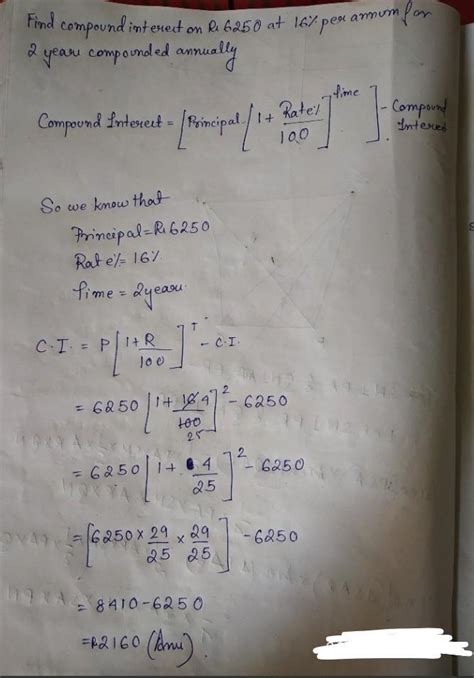 Find compound interest on Rs 6250 at 16% per annum for
2 years compounded annually
Compound Interest = [Principal [1 + Rate% / 100]^Time] - Compound Interest
So we know that
Principal = Rs 6250
Rate% = 16%
Time = 2 years
C.I. = P [1 + R / 100]^T - C.I.
= 6250 [1 + 16 4 / 100 25]^2 - 6250
= 6250 [1 + 4 / 25]^2 - 6250
= [6250 × 29/25 × 29/25] - 6250
= 8410 - 6250
= Rs 2160 (Ans)